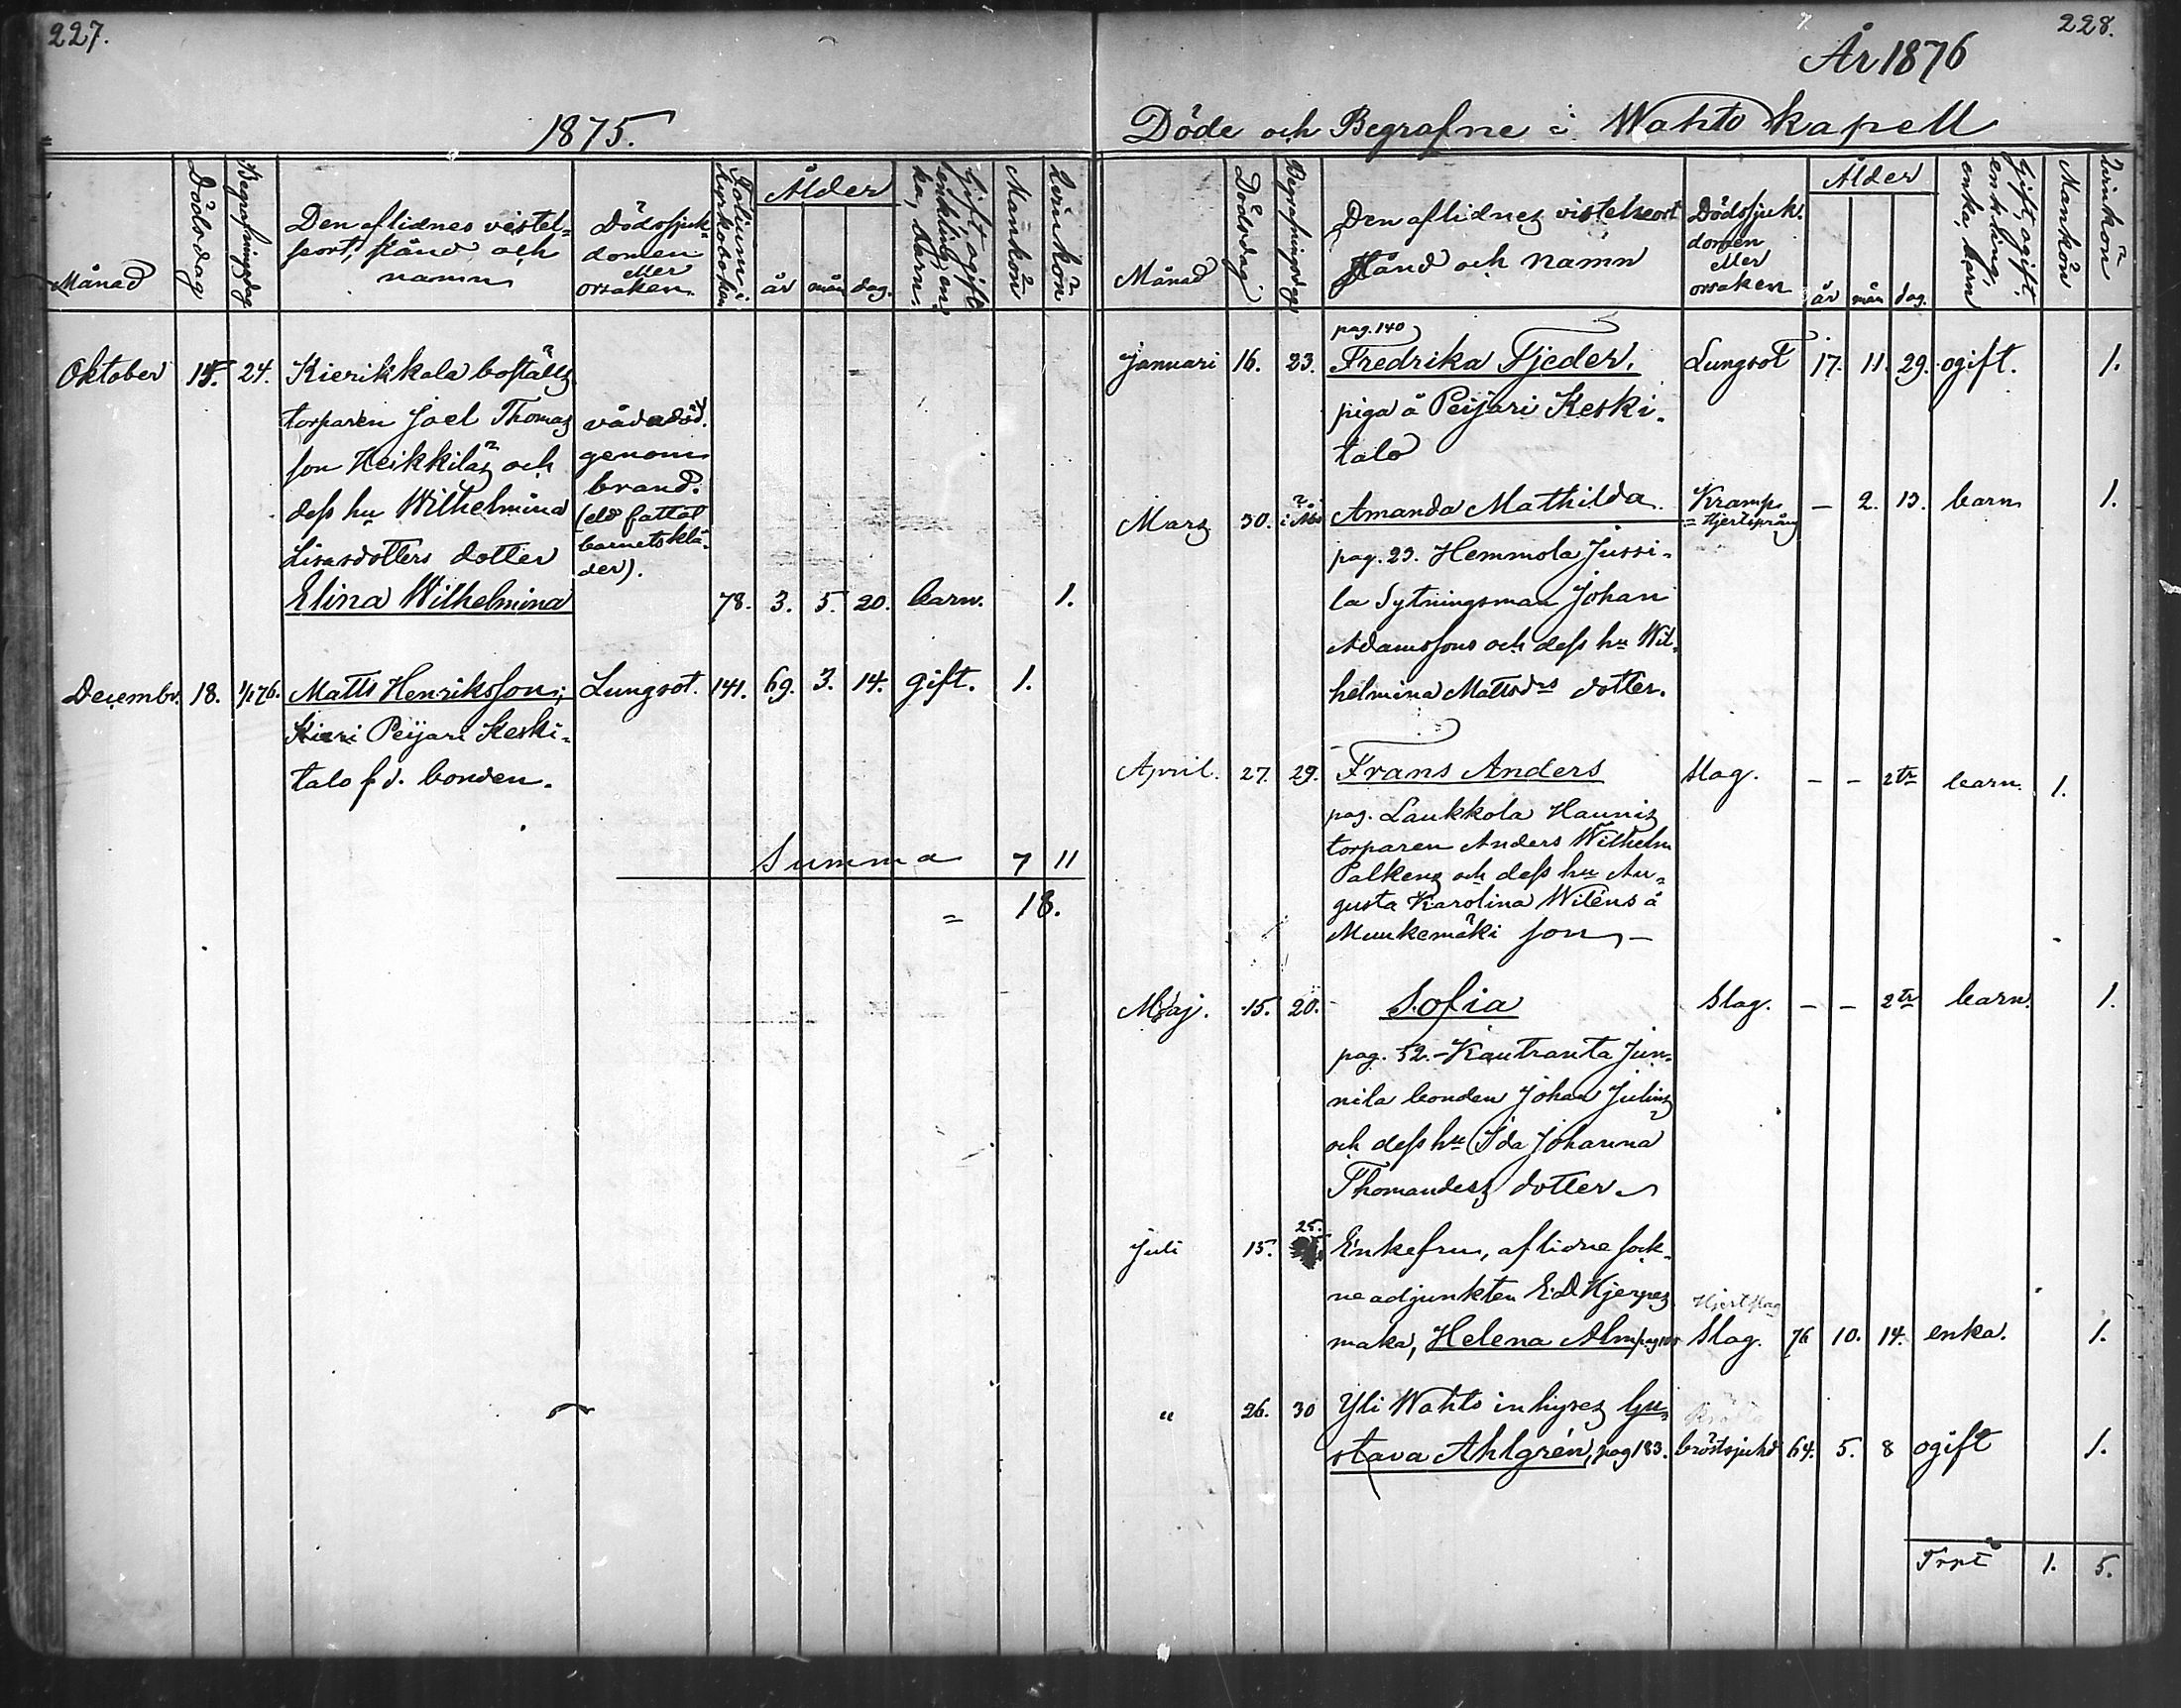 227.
1875.
Månad
Dödsdag
Begrafningsdag
Den aflidnes vistel-
seort, stånd och
namn
Dödssjuk-
domen
eller
orsaken.
Folium i
kyrkoboken
Ålder
år
mån
dag.
Gift, ogift
enkling, en-
ka, barn.
Mankön
Qvinkön
Oktober 15. 24. Kierikkala boställs
torparen Joel Thomas
son Heikkiläs och
dess hu Wilhelmina
Lisasdotters dotter
Elina Wilhelmina
vådadöd.
genom
brand.
(eld fattat
barnets klä-
der).
78. 3. 5. 20. barn. 1.
Decembr. 18. 1/1 76. Matts Henriksson; Lungsot. 141. 69. 3. 14. gift. 1.
Kieri Peijari Keski-
talo f.d. bonden.
Summa 7 11
= 18.
228.
År 1876
Döde och Begrafne i Wahto kapell
Månad
Dödsdag
Begrafningsdag
Den aflidnes vistelseort
stånd och namn
Dödssjuk-
domen
eller
orsaken
Ålder
år
mån
dag.
Gift, ogift,
enkling,
enka, barn
Mankön
Qvinkön
pag. 140
Januari 16. 23. Fredrika Tjeder. Lungsot 17. 11. 29. ogift. 1.
piga å Peijari Keski-
talo
Mars 30. i Åbo Amanda Mathilda. Kramp - 2. 13. barn 1.
= Hjertsprång
pag. 23. Hemmola Jussi-
la Sytningsman Johan
Adamssons och dess hu Wil-
helmina Mattsdrs dotter.
April. 27. 29. Frans Anders slag. - - 2 tr barn. 1.
pag. Laukkola Haunis
torparen Anders Wilhelm
Palkens och dess hu Au-
gusta Karolina Wiléns å
Muukemäki son, -
Maj. 15. 20. Sofia Slag. - - 2 tr barn. 1.
pag. 52. - Kautranta Jun-
nila bonden Johan Julins
och dess hu Ida Johanna
Thomandess dotter
25.
Juli 15. Enkefru, aflidne sock-
ne adjunkten E.D. Hjerpes
Hjertslag
maka, Helena Alm, Slag. 76 10. 14. enka. 1.
" 26. 30 Yli Wahto inhyses Gu-
stava Ahlgrén, pag 183. bröstsjukd 64. 5. 8 ogift 1.
Trpt 1. 5.